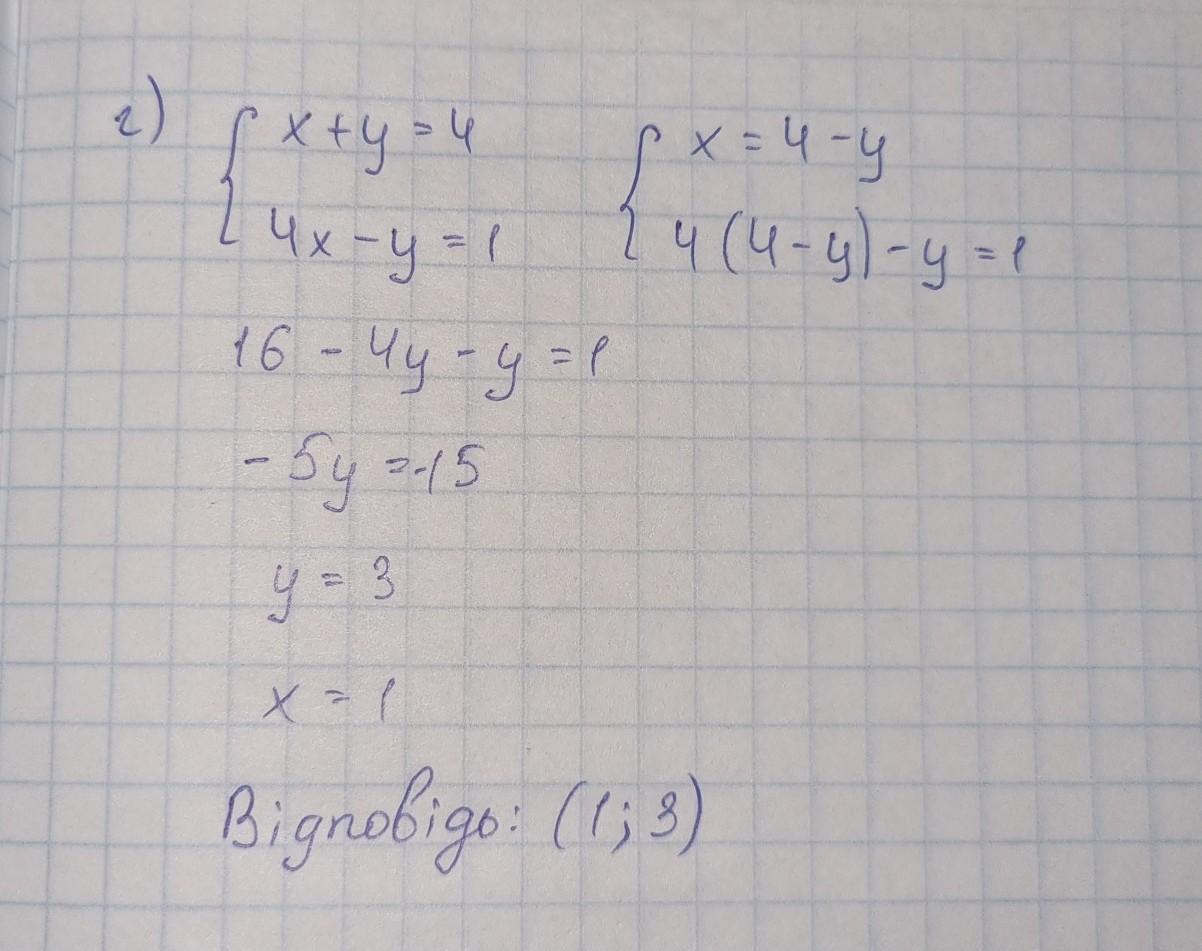 г) { x + y = 4 { x = 4 - y
4x - y = 1 4(4 - y) - y = 1
16 - 4y - y = 1
- 5y = -15
y = 3
x = 1
Відповідь: (1; 3)